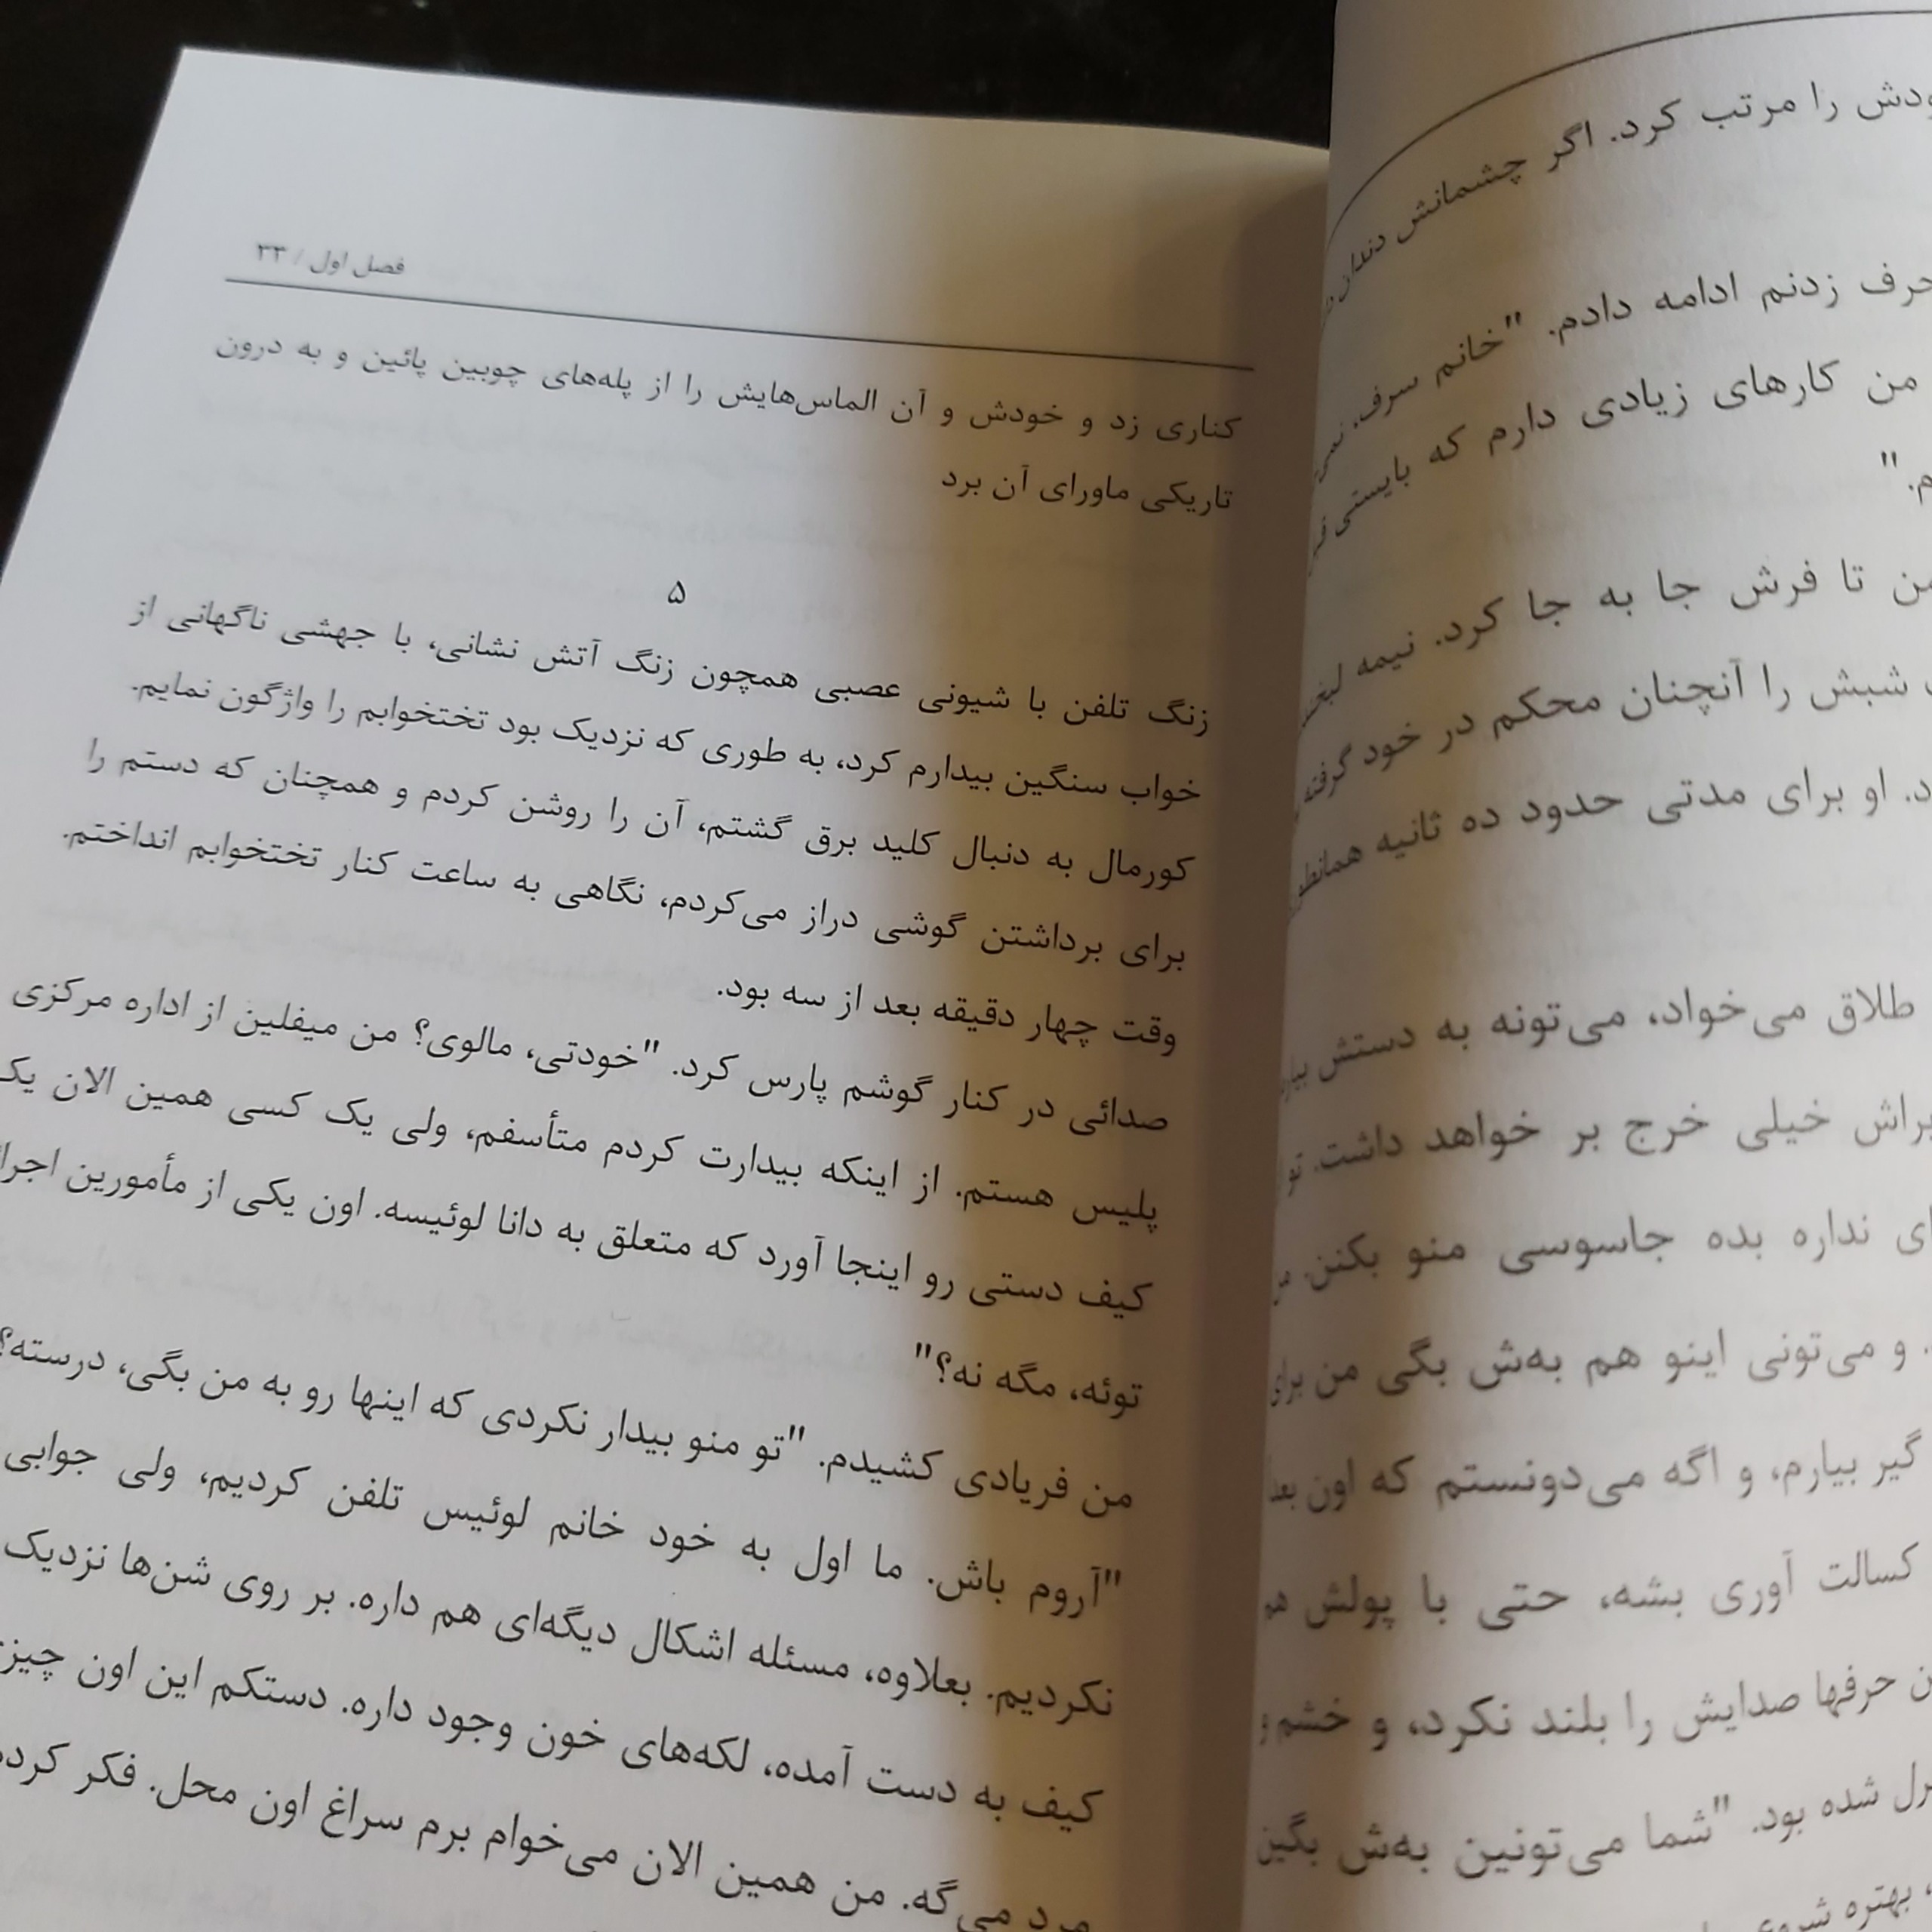 ودش را مرتب کرد. اگر چشمانش دندان
حرف زدنم ادامه دادم. "خانم سرف.
من کارهای زیادی دارم که بایستی
م."
من تا فرش جا به جا کرد. نیمه لبخند
شبش را آنچنان محکم در خود گرفته
د. او برای مدتی حدود ده ثانیه همانطور
طلاق می‌خواد، می‌تونه به دستش بیاره
براش خیلی خرج بر خواهد داشت. تو
ای نداره بده جاسوسی منو بکنن. من
. و می‌تونی اینو هم به‌ش بگی من برای
گیر بیارم، و اگه می‌دونستم که اون بعد
کسالت آوری بشه، حتی با پولش هم
ن حرفها صدایش را بلند نکرد، و خشم و
رل شده بود. "شما می‌تونین به‌ش بگین
، بهتره شروع
فصل اول / ۳۳
کناری زد و خودش و آن الماس‌هایش را از پله‌های چوبین پائین و به درون
تاریکی ماورای آن برد
۵
زنگ تلفن با شیونی عصبی همچون زنگ آتش نشانی، با جهشی ناگهانی از
خواب سنگین بیدارم کرد، به طوری که نزدیک بود تختخوابم را واژگون نمایم.
کورمال به دنبال کلید برق گشتم، آن را روشن کردم و همچنان که دستم را
برای برداشتن گوشی دراز می‌کردم، نگاهی به ساعت کنار تختخوابم انداختم.
وقت چهار دقیقه بعد از سه بود.
صدائی در کنار گوشم پارس کرد. "خودتی، مالوی؟ من میفلین از اداره مرکزی
پلیس هستم. از اینکه بیدارت کردم متأسفم، ولی یک کسی همین الان یک
کیف دستی رو اینجا آورد که متعلق به دانا لوئیسه. اون یکی از مأمورین اجرا
توئه، مگه نه؟"
من فریادی کشیدم. "تو منو بیدار نکردی که اینها رو به من بگی، درسته؟
"آروم باش. ما اول به خود خانم لوئیس تلفن کردیم، ولی جوابی
نکردیم. بعلاوه، مسئله اشکال دیگه‌ای هم داره. بر روی شن‌ها نزدیک
کیف به دست آمده، لکه‌های خون وجود داره. دستکم این اون چیز
مرد می‌گه. من همین الان می‌خوام برم سراغ اون محل. فکر کرد